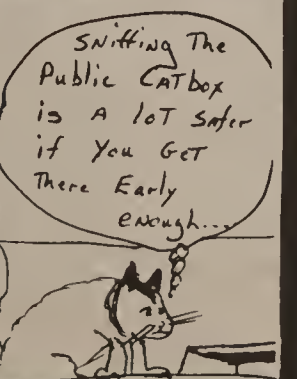 SNiffiNg The
Public CATbox
is A loT SAfer
if You GeT
There Early
eNough...